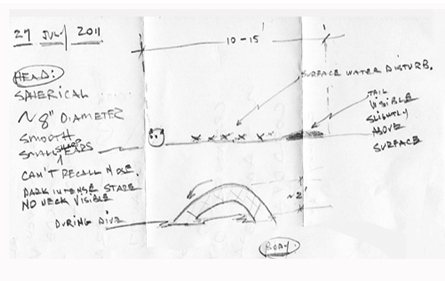 27 JULY 2011
10-15'
HEAD:
SPHERICAL
~8" DIAMETER
SMOOTH
SMALL SHARP EARS
CAN'T RECALL NOSE.
DARK INTENSE STARE
NO NECK VISIBLE
DURING DIVE
SURFACE WATER DISTURB.
TAIL
VISIBLE
SLIGHTLY
ABOVE
SURFACE
~2'
BODY